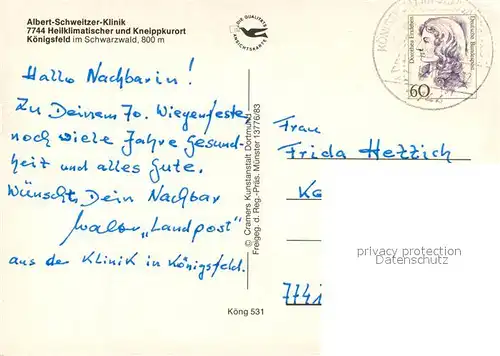 Albert-Schweitzer-Klinik
7744 Heilklimatischer und Kneippkurort
Königsfeld im Schwarzwald, 800 m
DIE QUALITÄTS
ANSICHTSKARTE
Hallo Nachbarin!
Zu Deinem 70. Wiegenfeste
noch viele Jahre Gesund-
heit und alles Gute.
Wünscht Dein Nachbar
Walter „Landpost"
aus der Klinik in Königsfeld.
© Cramers Kunstanstalt Dortmund
Freigeg. d. Reg.-Präs. Münster 13776/83
Köng 531
Dorothea Erxleben
Deutsche Bundespost
60
Frau
Frida Hezzich
privacy protection
Datenschutz